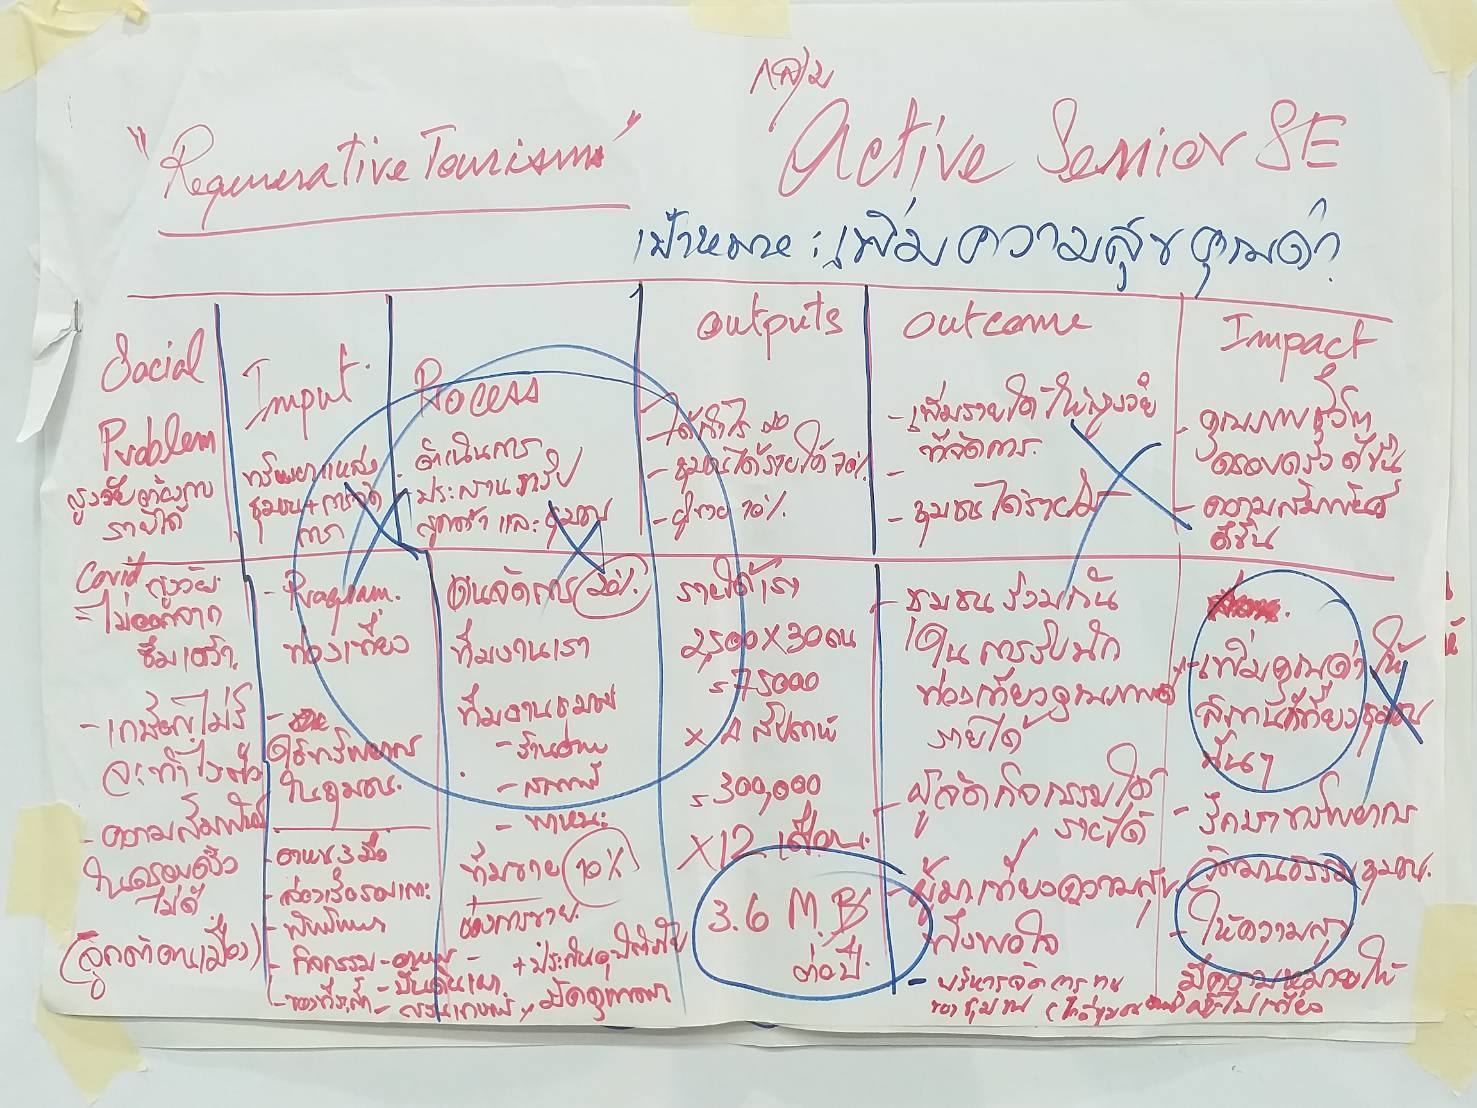 กลุ่ม
"Regenerative Tourism"
Active Senior SE
เป้าหมาย : เพิ่มความสุข คุณค่า
Social
Problem
สูงวัยต้องการ
รายได้
Covid สูงวัย
ไม่ออกจาก
ซึมเศร้า
- เกษียณไม่รู้
จะทำไรต่อ
- ความสัมพันธ์
ในครอบครัว
ไม่ดี
(ลูกค้าคนเมือง)
Input
ทรัพยากรแหล่ง
ชุมชน +
- Program
ท่องเที่ยว
ใช้ทรัพยากร
ในชุมชน
- อาหาร 3 มื้อ
- กิจกรรม - อาหาร
- ปั้นดินเผา
Process
ดำเนินการ
- ประสานทริป
ลูกค้า และ ชุมชน
คนจัดการ 20%
ทีมงานเรา
ทีมงานชุมชน
- ร้านอาหาร
- พาหนะ
ทีมขาย 10%
ช่องการขาย
+ ประกันอุบัติภัย
มัคคุเทศก์
Outputs
- ได้กำไร 20
- ชุมชนได้รายได้ 70%
- ผู้ขาย 10%
รายได้เรา
2,500 X 30 คน
= 75000
x 4 สัปดาห์
= 300,000
X 12 เดือน
3.6 M.B
ต่อปี
Outcome
- เพิ่มรายได้ให้สูงวัย
ที่จัดการ
- ชุมชนได้รายได้
- ชุมชนร่วมกัน
เป็น
ท่องเที่ยวคุณภาพ
รายได้
- ผู้จัดกิจกรรมได้
รายได้
- ผู้มาเที่ยวความสุข
พึงพอใจ
- บริหารจัดการ
Impact
- คุณภาพชีวิต
ครอบครัวดีขึ้น
- ความสัมพันธ์
ดีขึ้น
- เพิ่มคุณค่าให้
สถานที่เที่ยวชุมชน
นั้นๆ
- รักษาทรัพยากร
วัฒนธรรมชุมชน
- ให้ความสุข
มีความหมายให้